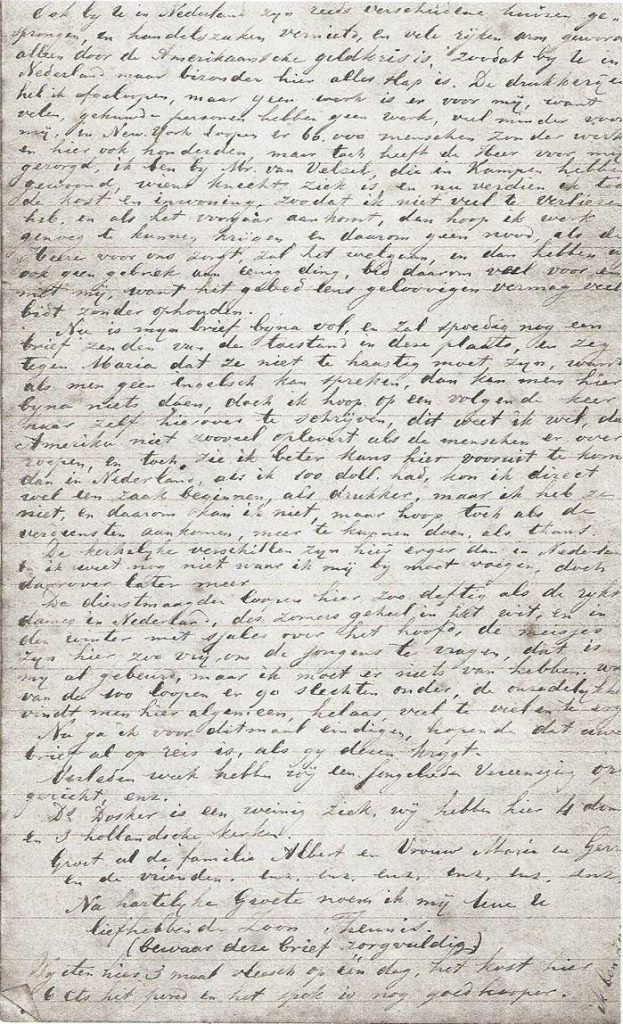 Ook by U in Nederland zyn reeds verscheidene huizen ge-
sprongen, en handelszaken vernield, en vele ryken arm geword
alleen door de Amerikaansche geldkrisis, zoodat by U in
Nederland maar bizonder hier alles slap is. De drukkeryen
heb ik afgeloopen, maar geen werk is er voor my, want
velen, gehuwde personen hebben geen werk, veel minder voor
my, in New. York loopen er 66.000 menschen zonder werk
en hier ook honderden, maar toch heeft de Heer voor my
gezorgd, ik ben by Mr. van Velzek, die in Kampen hebben
gewoond, wiens knecht ziek is, en nu verdien ik
de kost en inwoning, zoodat ik niet veel te verliezen
heb. en als het voorjaar aankomt, dan hoop ik werk
genoeg te kunnen krijgen en daarom geen nood, als de
Heere voor ons zorgt, zal het welgaan, en dan hebben
ook geen gebrek aan eenig ding, bid daarom veel voor en
met mij, want het gebed eens geloovigen vermag veel
bidt zonder ophouden.
Nu is myn brief byna vol, en zal spoedig nog een
brief zenden van de toestand in deze plaats, en zeg
tegen Maria dat ze niet te haastig moet zyn, want
als men geen Engelsch kan spreken, dan kan men hier
byna niets doen, doch ik hoop op een volgende keer
haar zelf hierover te schrijven, dit weet ik wel, da
Amerika niet zooveel oplevert als de menschen er over
roepen, en toch zie ik beter kans hier vooruit te kom
dan in Nederland, als ik 100 doll. had, kon ik direct
wel een zaak beginnen, als drukker, maar ik heb ze
niet, en daarom kan ik niet, maar hoop toch als de
verdiensten aankomen, meer te kunnen doen, als thans.
De kerkelyke verschillen zyn hier erger dan in Nederlan
en ik weet nog niet waar ik mij by moet voegen, doch
daarover later meer
De dienstmaagden loopen hier zoo deftig als de ryke
dames in Nederland, des zomers geheel in het wit, en in
den winter met sjales over het hoofd, de meisjes
zyn hier zoo vry, om de jongens te vragen, dat is
my al gebeurd, maar ik moet er niets van hebben. want
van de 100 loopen er 90 slechten onder, de onzedelykh
vindt men hier algemeen, helaas, veel te veel en te erg
Nu ga ik voor ditmaal eindigen, hopende dat uwe
brief al op reis is, als gy dezen krygt.
Verleden week hebben wij een Jongelieden Vereeniging op-
gericht, enz.
Ds Dosker is een weinig ziek. wij hebben hier 4 dom
en 3 hollandsche kerken.
Groet al de familie Albert en Vrouw Maria en Gerr
en de vrienden. enz. enz. enz. enz. enz. enz.
Na hartelyke Groete noem ik mij Uwe U
liefhebbende Zoon Theunis.
(bewaar deze brief zorgvuldig)
Wy eten hier 3 maal vleesch op één dag, het kost hier
6 cts het pond en het spek is nog goedkooper.